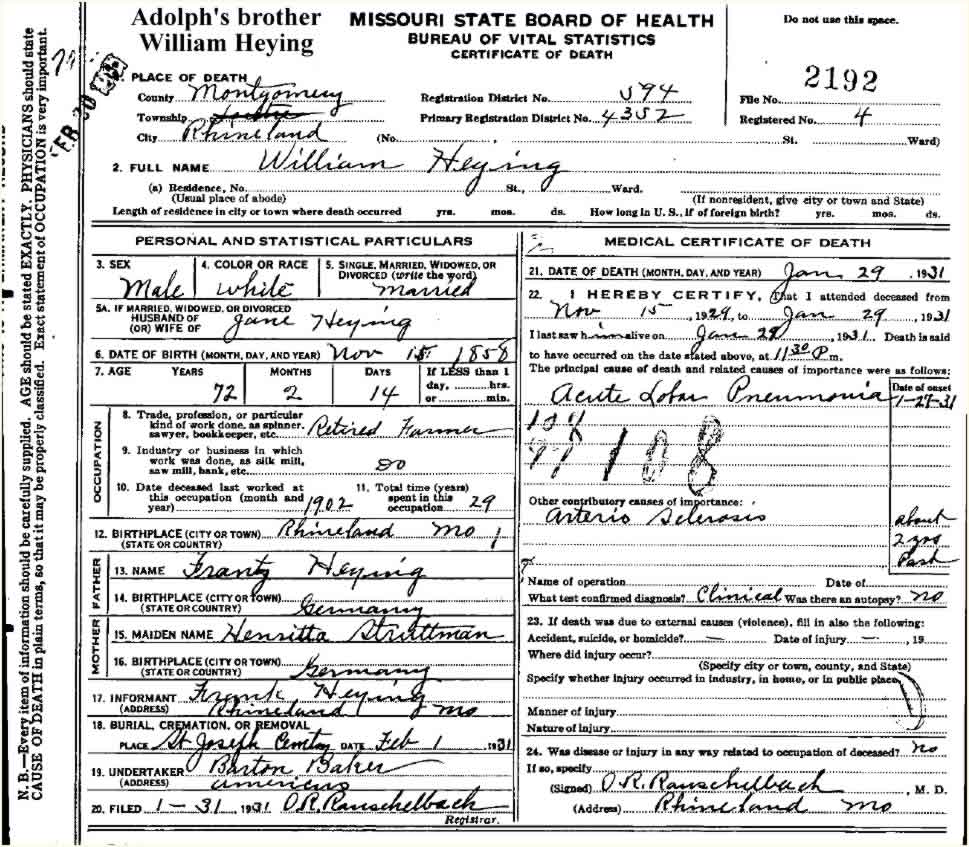 Adolph's brother
William Heying
MISSOURI STATE BOARD OF HEALTH
BUREAU OF VITAL STATISTICS
CERTIFICATE OF DEATH
Do not use this space.
2192
1. PLACE OF DEATH
County Montgomery Registration District No. 594 File No.
Township Primary Registration District No. 4352 Registered No. 4
City Rhineland (No. St. Ward)
2. FULL NAME William Heying
(a) Residence, No. St., Ward.
(Usual place of abode) (If nonresident, give city or town and State)
Length of residence in city or town where death occurred yrs. mos. ds. How long in U. S., if of foreign birth? yrs. mos. ds.
PERSONAL AND STATISTICAL PARTICULARS
3. SEX Male
4. COLOR OR RACE White
5. SINGLE, MARRIED, WIDOWED, OR DIVORCED (write the word) Married
5A. IF MARRIED, WIDOWED, OR DIVORCED
HUSBAND OF
(OR) WIFE OF Jane Heying
6. DATE OF BIRTH (MONTH, DAY, AND YEAR) Nov 15 1858
7. AGE YEARS MONTHS DAYS If LESS than 1
day, hrs.
72 2 14 or min.
OCCUPATION
8. Trade, profession, or particular
kind of work done, as spinner,
sawyer, bookkeeper, etc. Retired Farmer
9. Industry or business in which
work was done, as silk mill,
saw mill, bank, etc. do
10. Date deceased last worked at
this occupation (month and
year) 1902
11. Total time (years)
spent in this
occupation 29
12. BIRTHPLACE (CITY OR TOWN) Rhineland Mo
(STATE OR COUNTRY)
FATHER
13. NAME Frantz Heying
14. BIRTHPLACE (CITY OR TOWN)
(STATE OR COUNTRY) Germany
MOTHER
15. MAIDEN NAME Henritta Struttman
16. BIRTHPLACE (CITY OR TOWN)
(STATE OR COUNTRY) Germany
17. INFORMANT Frank Heying
(ADDRESS) Rhineland Mo
18. BURIAL, CREMATION, OR REMOVAL
PLACE St Joseph Cemtry DATE Feb 1 1931
19. UNDERTAKER Barton Baker
(ADDRESS) Americus
20. FILED 1-31 1931 O.R. Rauschelbach
Registrar.
MEDICAL CERTIFICATE OF DEATH
21. DATE OF DEATH (MONTH, DAY, AND YEAR) Jan 29 1931
22. I HEREBY CERTIFY, That I attended deceased from
Nov 15, 1929, to Jan 29, 1931
I last saw him alive on Jan 29, 1931. Death is said
to have occurred on the date stated above, at 11 30 P m.
The principal cause of death and related causes of importance were as follows:
Date of onset
Acute Lobar Pneumonia 1-27-31
108
Other contributory causes of importance:
Arterio Sclerosis about
2 yrs
Past
Name of operation Date of
What test confirmed diagnosis? Clinical Was there an autopsy? no
23. If death was due to external causes (violence), fill in also the following:
Accident, suicide, or homicide? — Date of injury —, 19
Where did injury occur?
(Specify city or town, county, and State)
Specify whether injury occurred in industry, in home, or in public place.
Manner of injury
Nature of injury
24. Was disease or injury in any way related to occupation of deceased? no
If so, specify
(Signed) O.R. Rauschelbach, M. D.
(Address) Rhineland Mo
N. B.—Every item of information should be carefully supplied. AGE should be stated EXACTLY. PHYSICIANS should state
CAUSE OF DEATH in plain terms, so that it may be properly classified. Exact statement of OCCUPATION is very important.